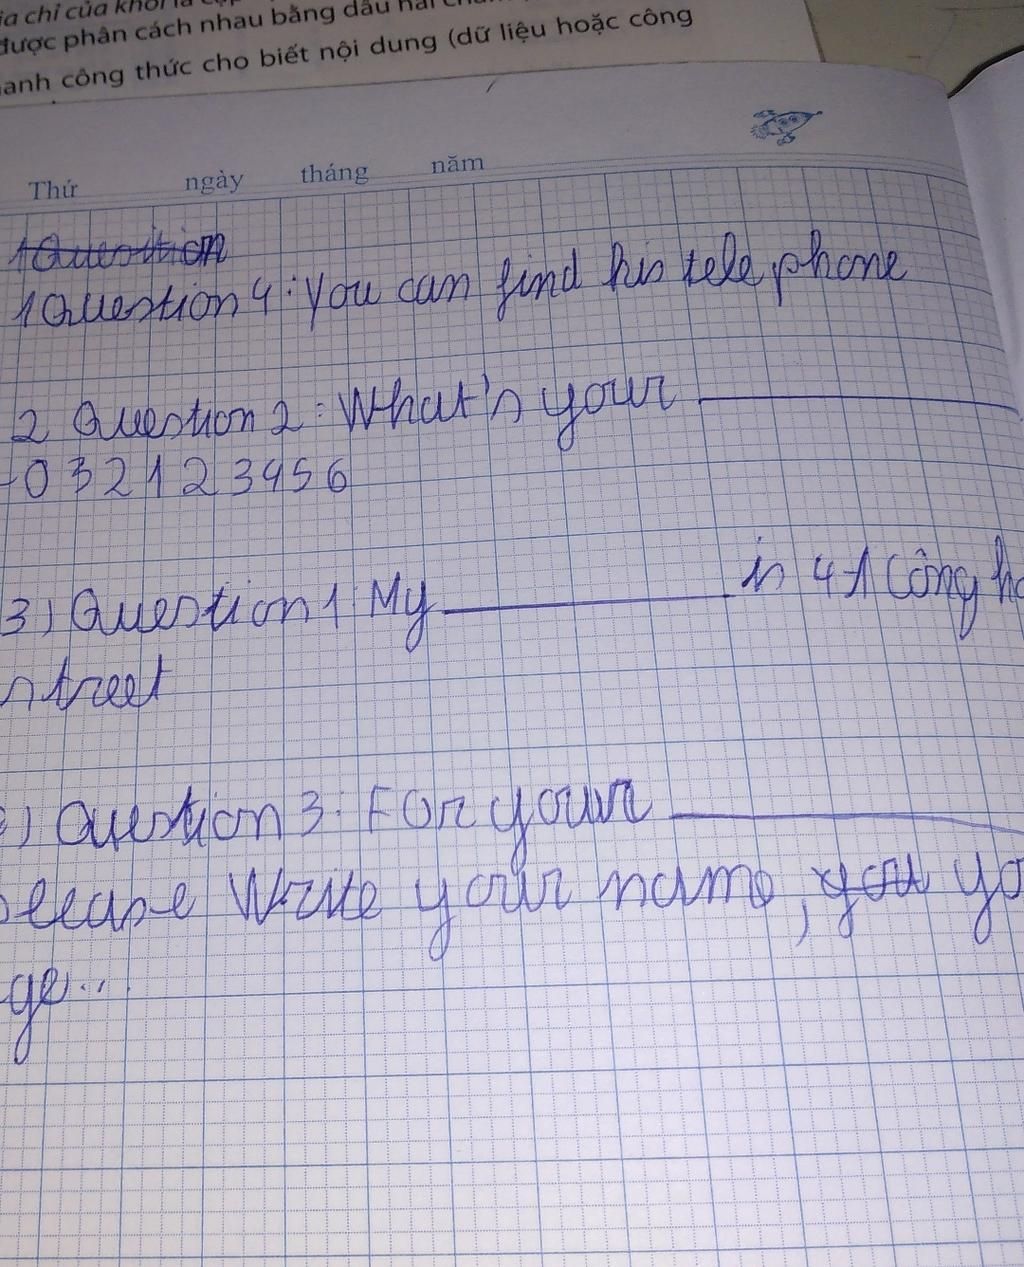 ịa chỉ của khối là
được phân cách nhau bằng dấu hai
anh công thức cho biết nội dung (dữ liệu hoặc công
Thứ ngày tháng năm
1Question
1Question 4: You can find his telephone
2 Question 2: What's your ____
-032123456
3) Question 1: My ____ is 4-1 Công
street
) Question 3: For your ____
lease Write your name, you yo
ge...